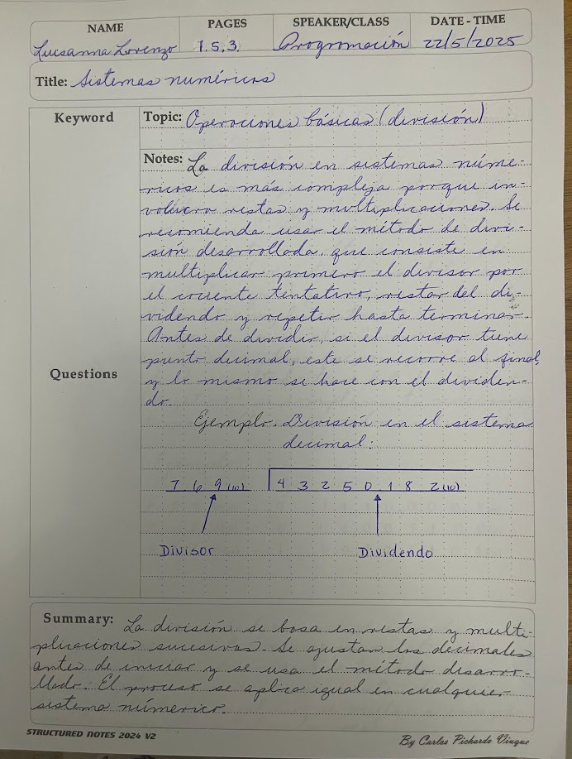 NAME PAGES SPEAKER/CLASS DATE - TIME
Lucsanna Lorenzo 1.5.3. Programación 22/5/2025
Title: Sistemas numéricos
Keyword
Topic: Operaciones básicas (división)
Notes: La división en sistemas núme-
ricos es más compleja porque in-
volucra restas y multiplicaciones. Se
recomienda usar el método de divi-
sión desarrollada, que consiste en
multiplicar primero el divisor por
el cociente tentativo, restar del di-
videndo y repetir hasta terminar.
Antes de dividir, si el divisor tiene
punto decimal, este se recorre al final,
y lo mismo se hace con el dividen-
do.
Questions
Ejemplo. División en el sistema
decimal:
7 6 9 (10) 4 3 2 5 0 1 8 2 (10)
Divisor Dividendo
Summary: La división se basa en restas y multi-
plicaciones sucesivas. Se ajustan los decimales
antes de iniciar y se usa el método desarro-
llado. El proceso se aplica igual en cualquier
sistema númerico.
STRUCTURED NOTES 2024 V2 By Carlos Pichardo Viuque